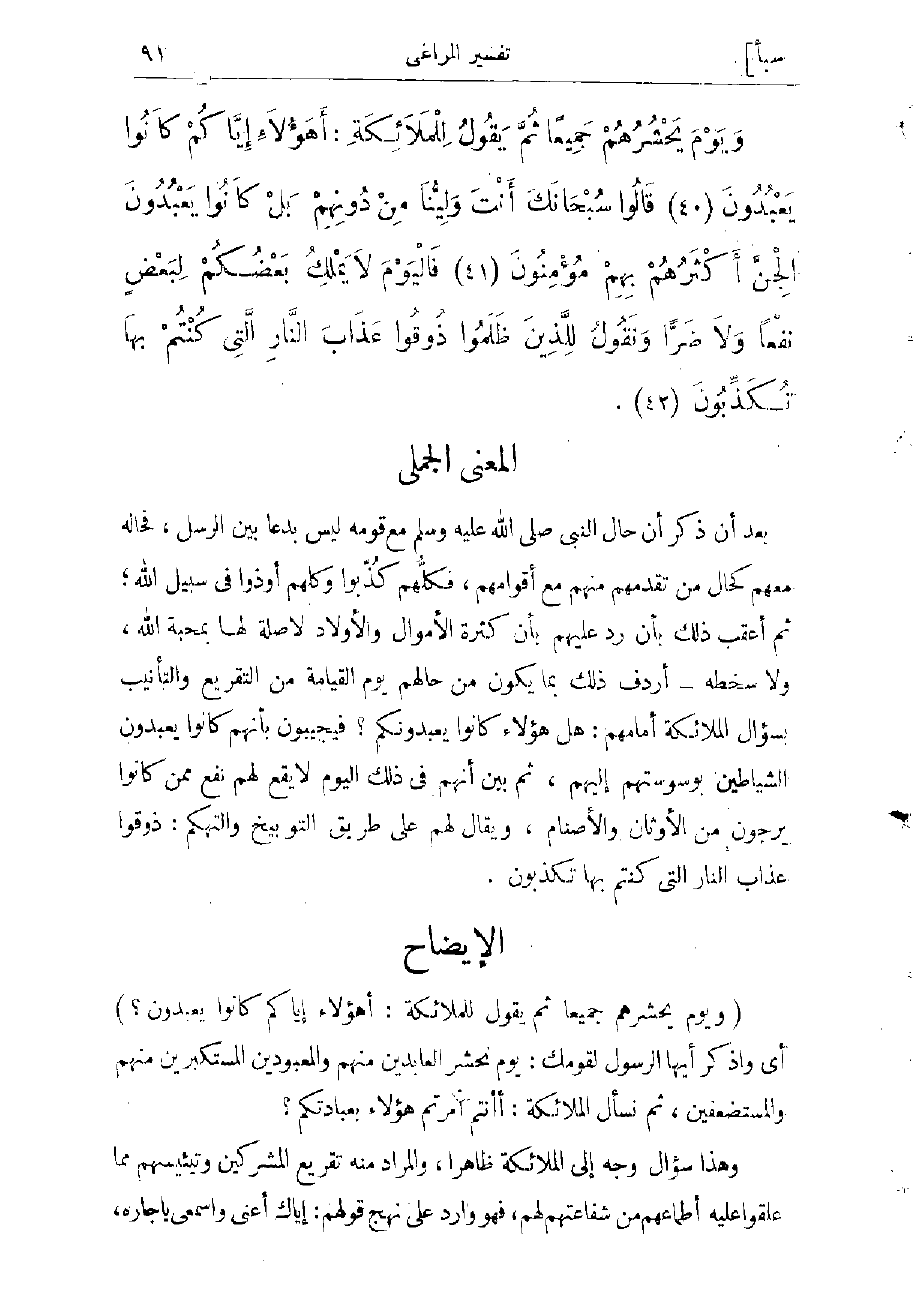 سبأ] تفسير المراغى ٩١
وَيَوْمَ يَحْشُرُهُمْ جَمِيعًا ثُمَّ يَقُولُ لِلْمَلَائِكَةِ : أَهٰؤُلَاءِ إِيَّاكُمْ كَانُوا
يَعْبُدُونَ (٤٠) قَالُوا سُبْحَانَكَ أَنْتَ وَلِيُّنَا مِنْ دُونِهِمْ بَلْ كَانُوا يَعْبُدُونَ
الْجِنَّ أَكْثَرُهُمْ بِهِمْ مُؤْمِنُونَ (٤١) فَالْيَوْمَ لَا يَمْلِكُ بَعْضُكُمْ لِبَعْضٍ
نَفْعًا وَلَا ضَرًّا وَنَقُولُ لِلَّذِينَ ظَلَمُوا ذُوقُوا عَذَابَ النَّارِ الَّتِى كُنْتُمْ بِهَا
تُكَذِّبُونَ (٤٢) .
المعنى الجملى
بعد أن ذكر أن حال النبى صلى الله عليه وسلم مع قومه ليس بدعا بين الرسل ، فحاله
معهم كحال من تقدمهم منهم مع أقوامهم ، فكلُّهم كُذّبوا وكلهم أوذوا فى سبيل الله ؛
ثم أعقب ذلك بأن رد عليهم بأن كثرة الأموال والأولاد لاصلة لها بمحبة الله ،
ولا سخطه – أردف ذلك بما يكون من حالهم يوم القيامة من التقريع والتأنيب
بسؤال الملائكة أمامهم : هل هؤلاء كانوا يعبدونكم ؟ فيجيبون بأنهم كانوا يعبدون
الشياطين بوسوستهم إليهم ، ثم بين أنهم فى ذلك اليوم لايقع لهم نفع ممن كانوا
يرجون من الأوثان والأصنام ، ويقال لهم على طريق التوبيخ والتهكم : ذوقوا
عذاب النار التى كنتم بها تكذبون .
الإيضاح
( ويوم يحشرهم جميعا ثم يقول للملائكة : أهؤلاء إياكم كانوا يعبدون ؟ )
أى واذكر أيها الرسول لقومك : يوم نحشر العابدين منهم والمعبودين المستكبرين منهم
والمستضعفين ، ثم نسأل الملائكة : أأنتم أمرتم هؤلاء بعبادتكم ؟
وهذا سؤال وجه إلى الملائكة ظاهرا ، والمراد منه تقريع المشركين وتيئيسهم مما
علقوا عليه أطماعهم من شفاعتهم لهم، فهو وارد على نهج قولهم: إياك أعنى واسمعى ياجاره،